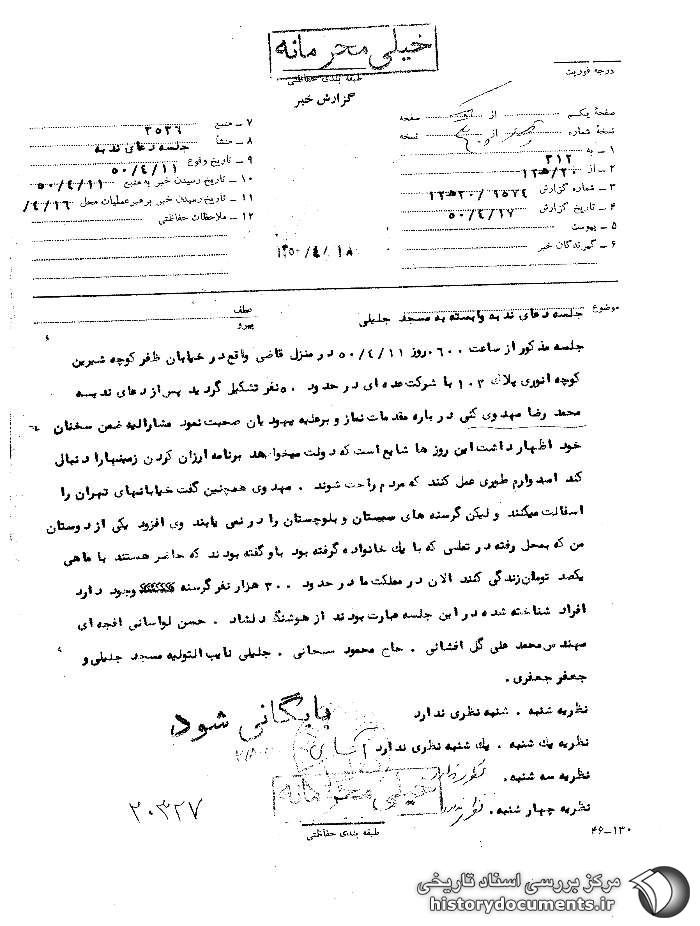 خیلی محرمانه
طبقه بندی حفاظتی
گزارش خبر
درجه فوریت
صفحهٔ یکم از صفحه
نسخهٔ شماره از نسخه
۱ – به ۳۱۲
۲ – از ۲۰/ﻫ۱۲
۳ – شمارهٔ گزارش ۹۵۷۴/۲۰ﻫ۱۲
۴ – تاریخ گزارش ۵۰/۴/۱۷
۵ – پیوست
۶ – گیرندگان خبر
۷ – منبع ۲۵۳۶
۸ – منشأ جلسه دعای ندبه
۹ – تاریخ وقوع ۵۰/۴/۱۱
۱۰ – تاریخ رسیدن خبر به منبع ۵۰/۴/۱۱
۱۱ – تاریخ رسیدن خبر به رهبر عملیات محل ۴/۱۶/
۱۲ – ملاحظات حفاظتی
۱۳۵۰/۴/۱۸
موضوع جلسه دعای ندبه وابسته به مسجد جلیلی
عطف
پیرو
جلسه مذکور از ساعت ۰۶۰۰ روز ۵۰/۴/۱۱ در منزل قاضی واقع در خیابان ظفر کوچه شیرین
کوچه انوری پلاک ۱۰۳ با شرکت عده ای در حدود ۵۰ نفر تشکیل گردید پس از دعای ندبه
محمد رضا مهدوی کنی در باره مقدمات نماز و برعلیه یهودیان صحبت نمود مشارالیه ضمن سخنان
خود اظهار داشت این روز ها شایع است که دولت میخواهد برنامه ارزان کردن زمینها را دنبالی
کند امیدوارم طوری عمل کنند که مردم راحت شوند . مهدوی همچنین گفت خیابانهای تهران را
اسفالت میکنند و لیکن گرسنه های سیستان و بلوچستان را در نمی یابند وی افزود یکی از دوستان
من که بمحل رفته در تماسی که با یک خانواده گرفته بود باو گفته بودند که حاضر هستند با ماهی
یکصد تومان زندگی کنند الان در مملکت ما در حدود ۳۰۰ هزار نفر گرسنه وجود دارد
افراد شناخته شده در این جلسه عبارت بودند از هوشنگ دلشاد . حسن لواسانی افجه ای
مهندس محمد علی گل افشانی . حاج محمود سبحانی . جلیلی نایب التولیه مسجد جلیلی و
جعفر جعفری .
نظریه شنبه . شنبه نظری ندارد
نظریه یك شنبه . یك شنبه نظری ندارد
نظریه سه شنبه .
نظریه چهار شنبه .
بایگانی شود
خیلی محرمانه
طبقه بندی حفاظتی
۲۰۳۲۷
۴۶–۱۳۰
مرکز بررسی اسناد تاریخی
historydocuments.ir